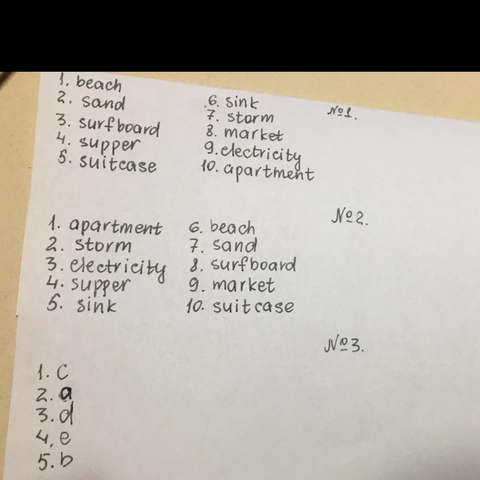 №1.
1. beach
2. sand
3. surfboard
4. supper
5. suitcase
6. sink
7. storm
8. market
9. electricity
10. apartment
№2.
1. apartment
2. storm
3. electricity
4. supper
5. sink
6. beach
7. sand
8. surfboard
9. market
10. suitcase
№3.
1. c
2. a
3. d
4. e
5. b